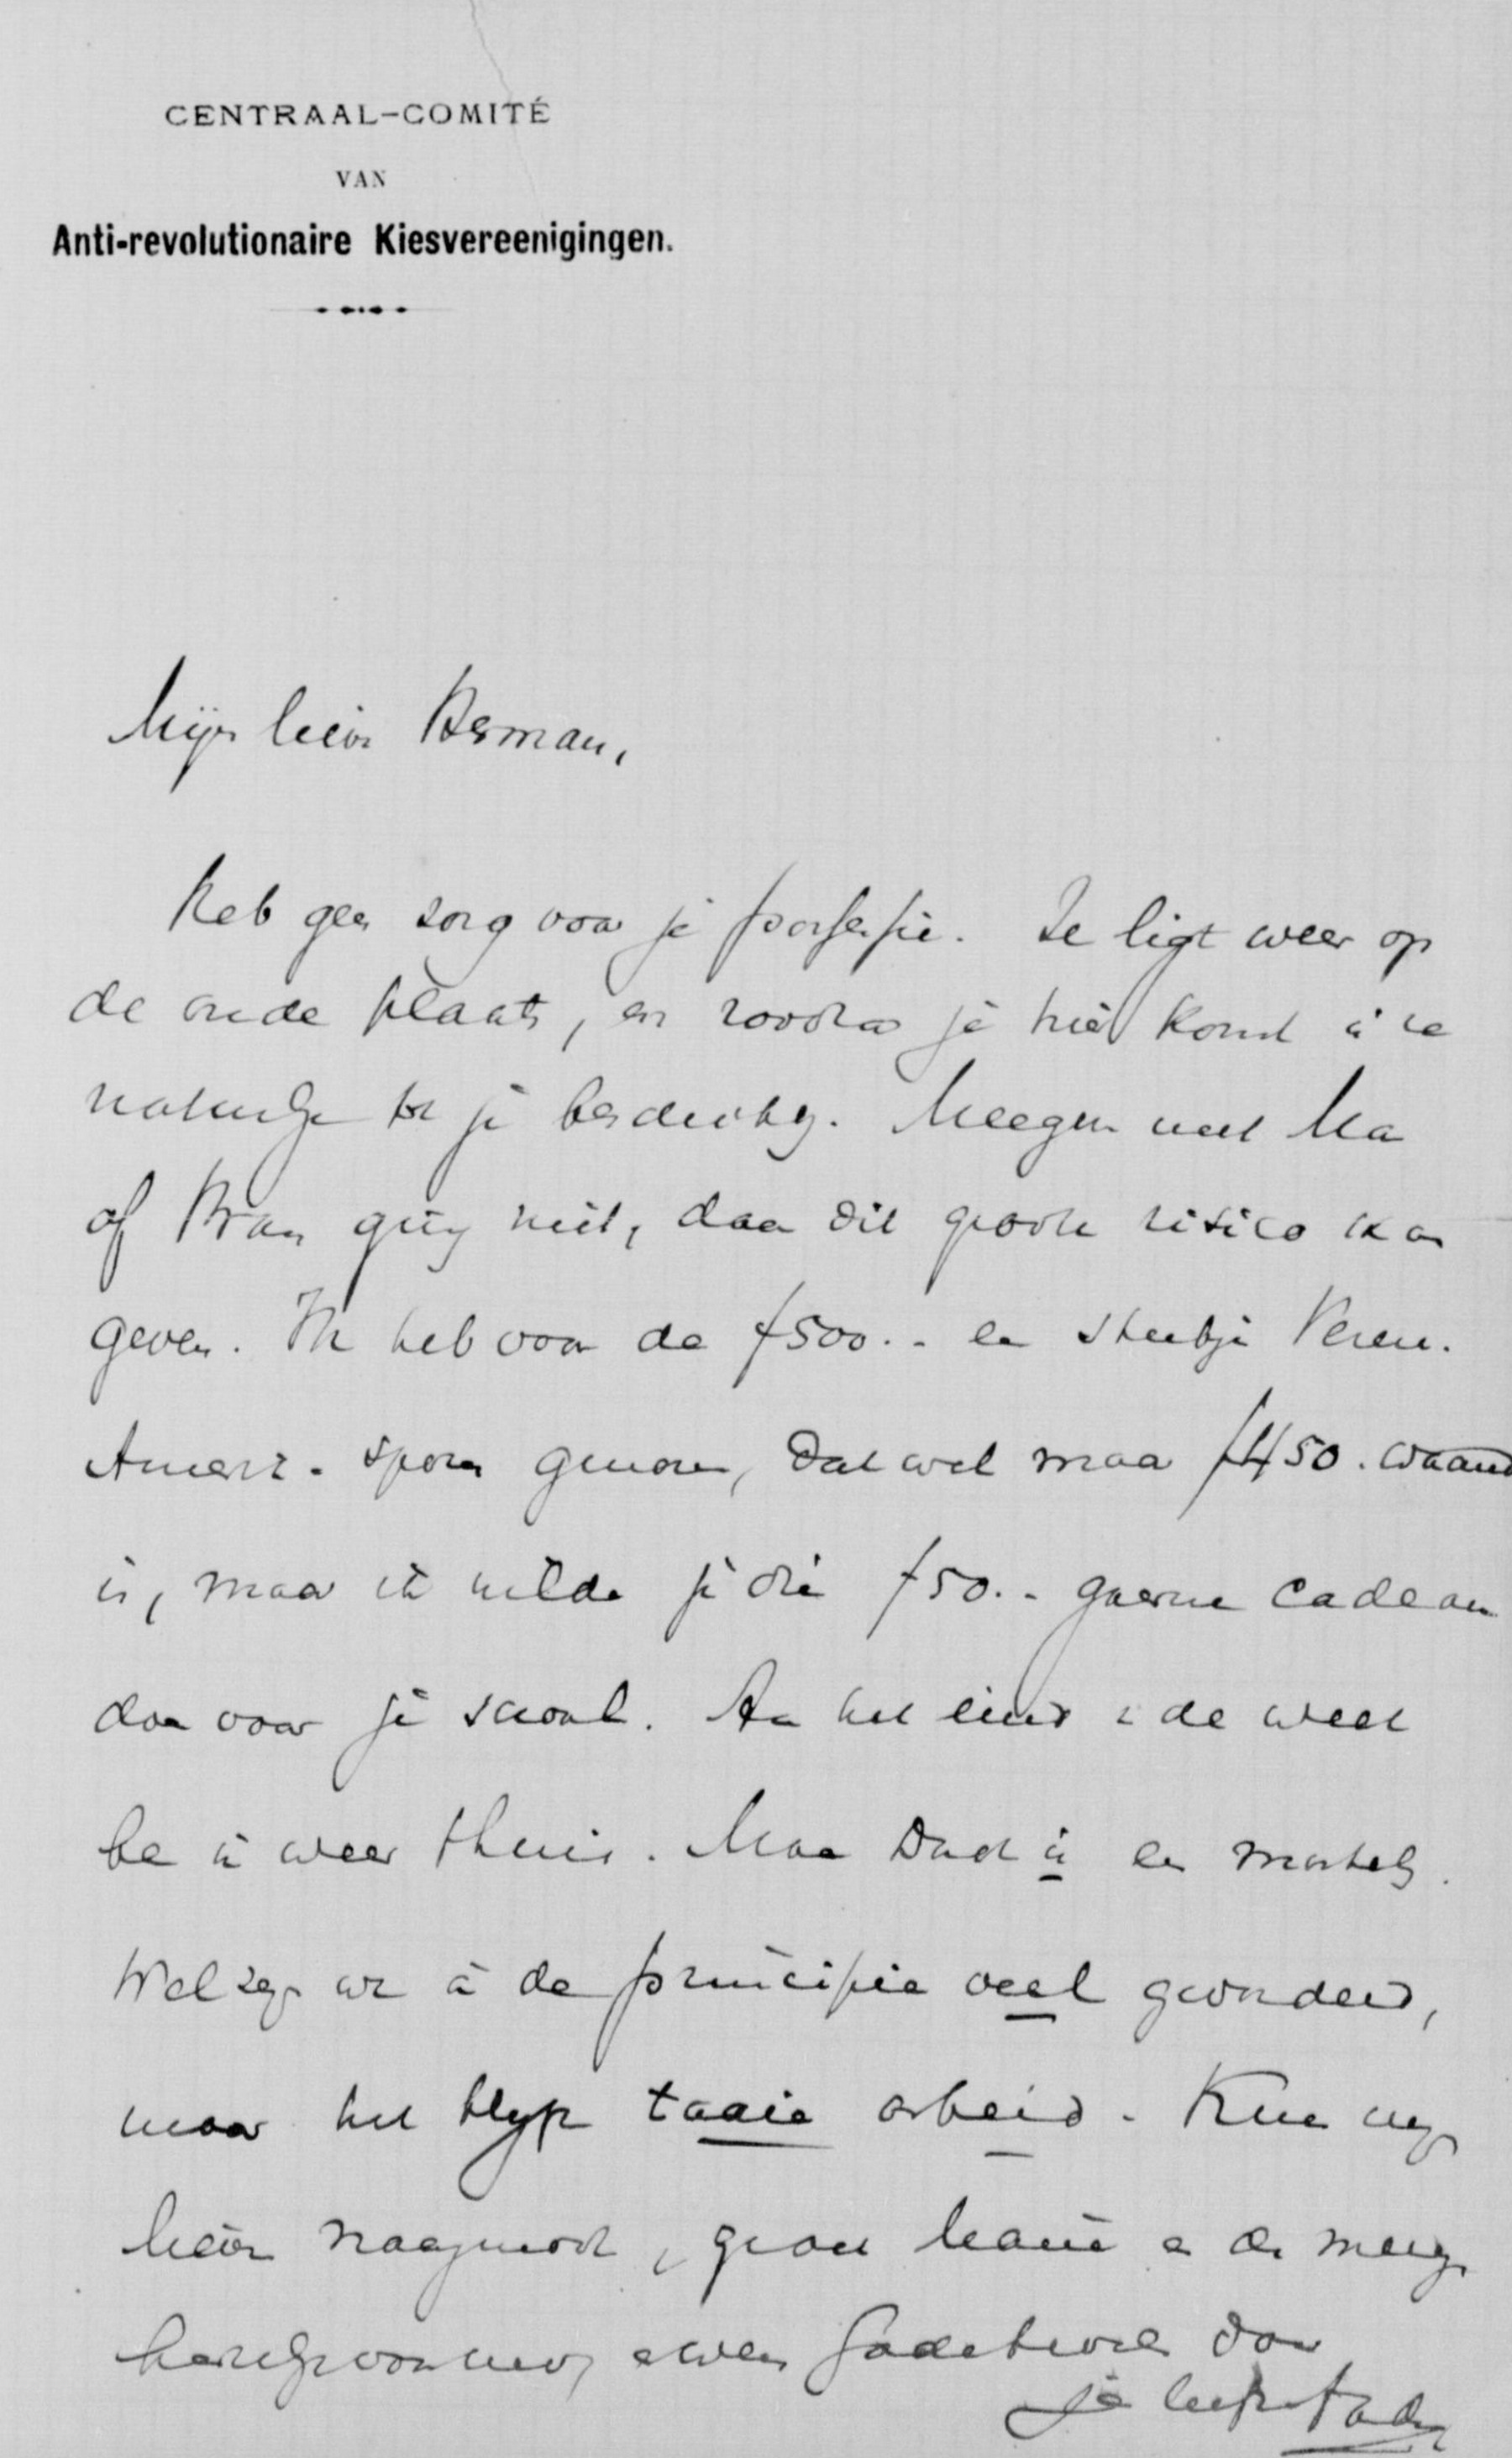 CENTRAAL-COMITÉ
VAN
Anti-revolutionaire Kiesvereenigingen.
Mijn lieve Herman,
Heb geen zorg voor je portefeuille. Ze ligt weer op
de oude plaats, en zoodra je hier komt is ze
natuurlijk tot je beschikking. Meegeven met Ma
of Bram ging niet, daar dit groote risico kan
geven. Ik heb voor de ƒ500.- een stukje Veren.
Amerik. sporen genomen, dat wel maar ƒ450. waard
is, maar ik wilde je die ƒ50.- gaarne cadeau
doen voor je schaal. Aan het eind der week
ben ik weer thuis. Maar Dad is een
Wel zijn we in de principie veel gevorderd,
maar het blijft taaie arbeid. Kus mijn
lieve, groet en de
hartelijk, en wees Gode bevolen door
je liefh. Vader